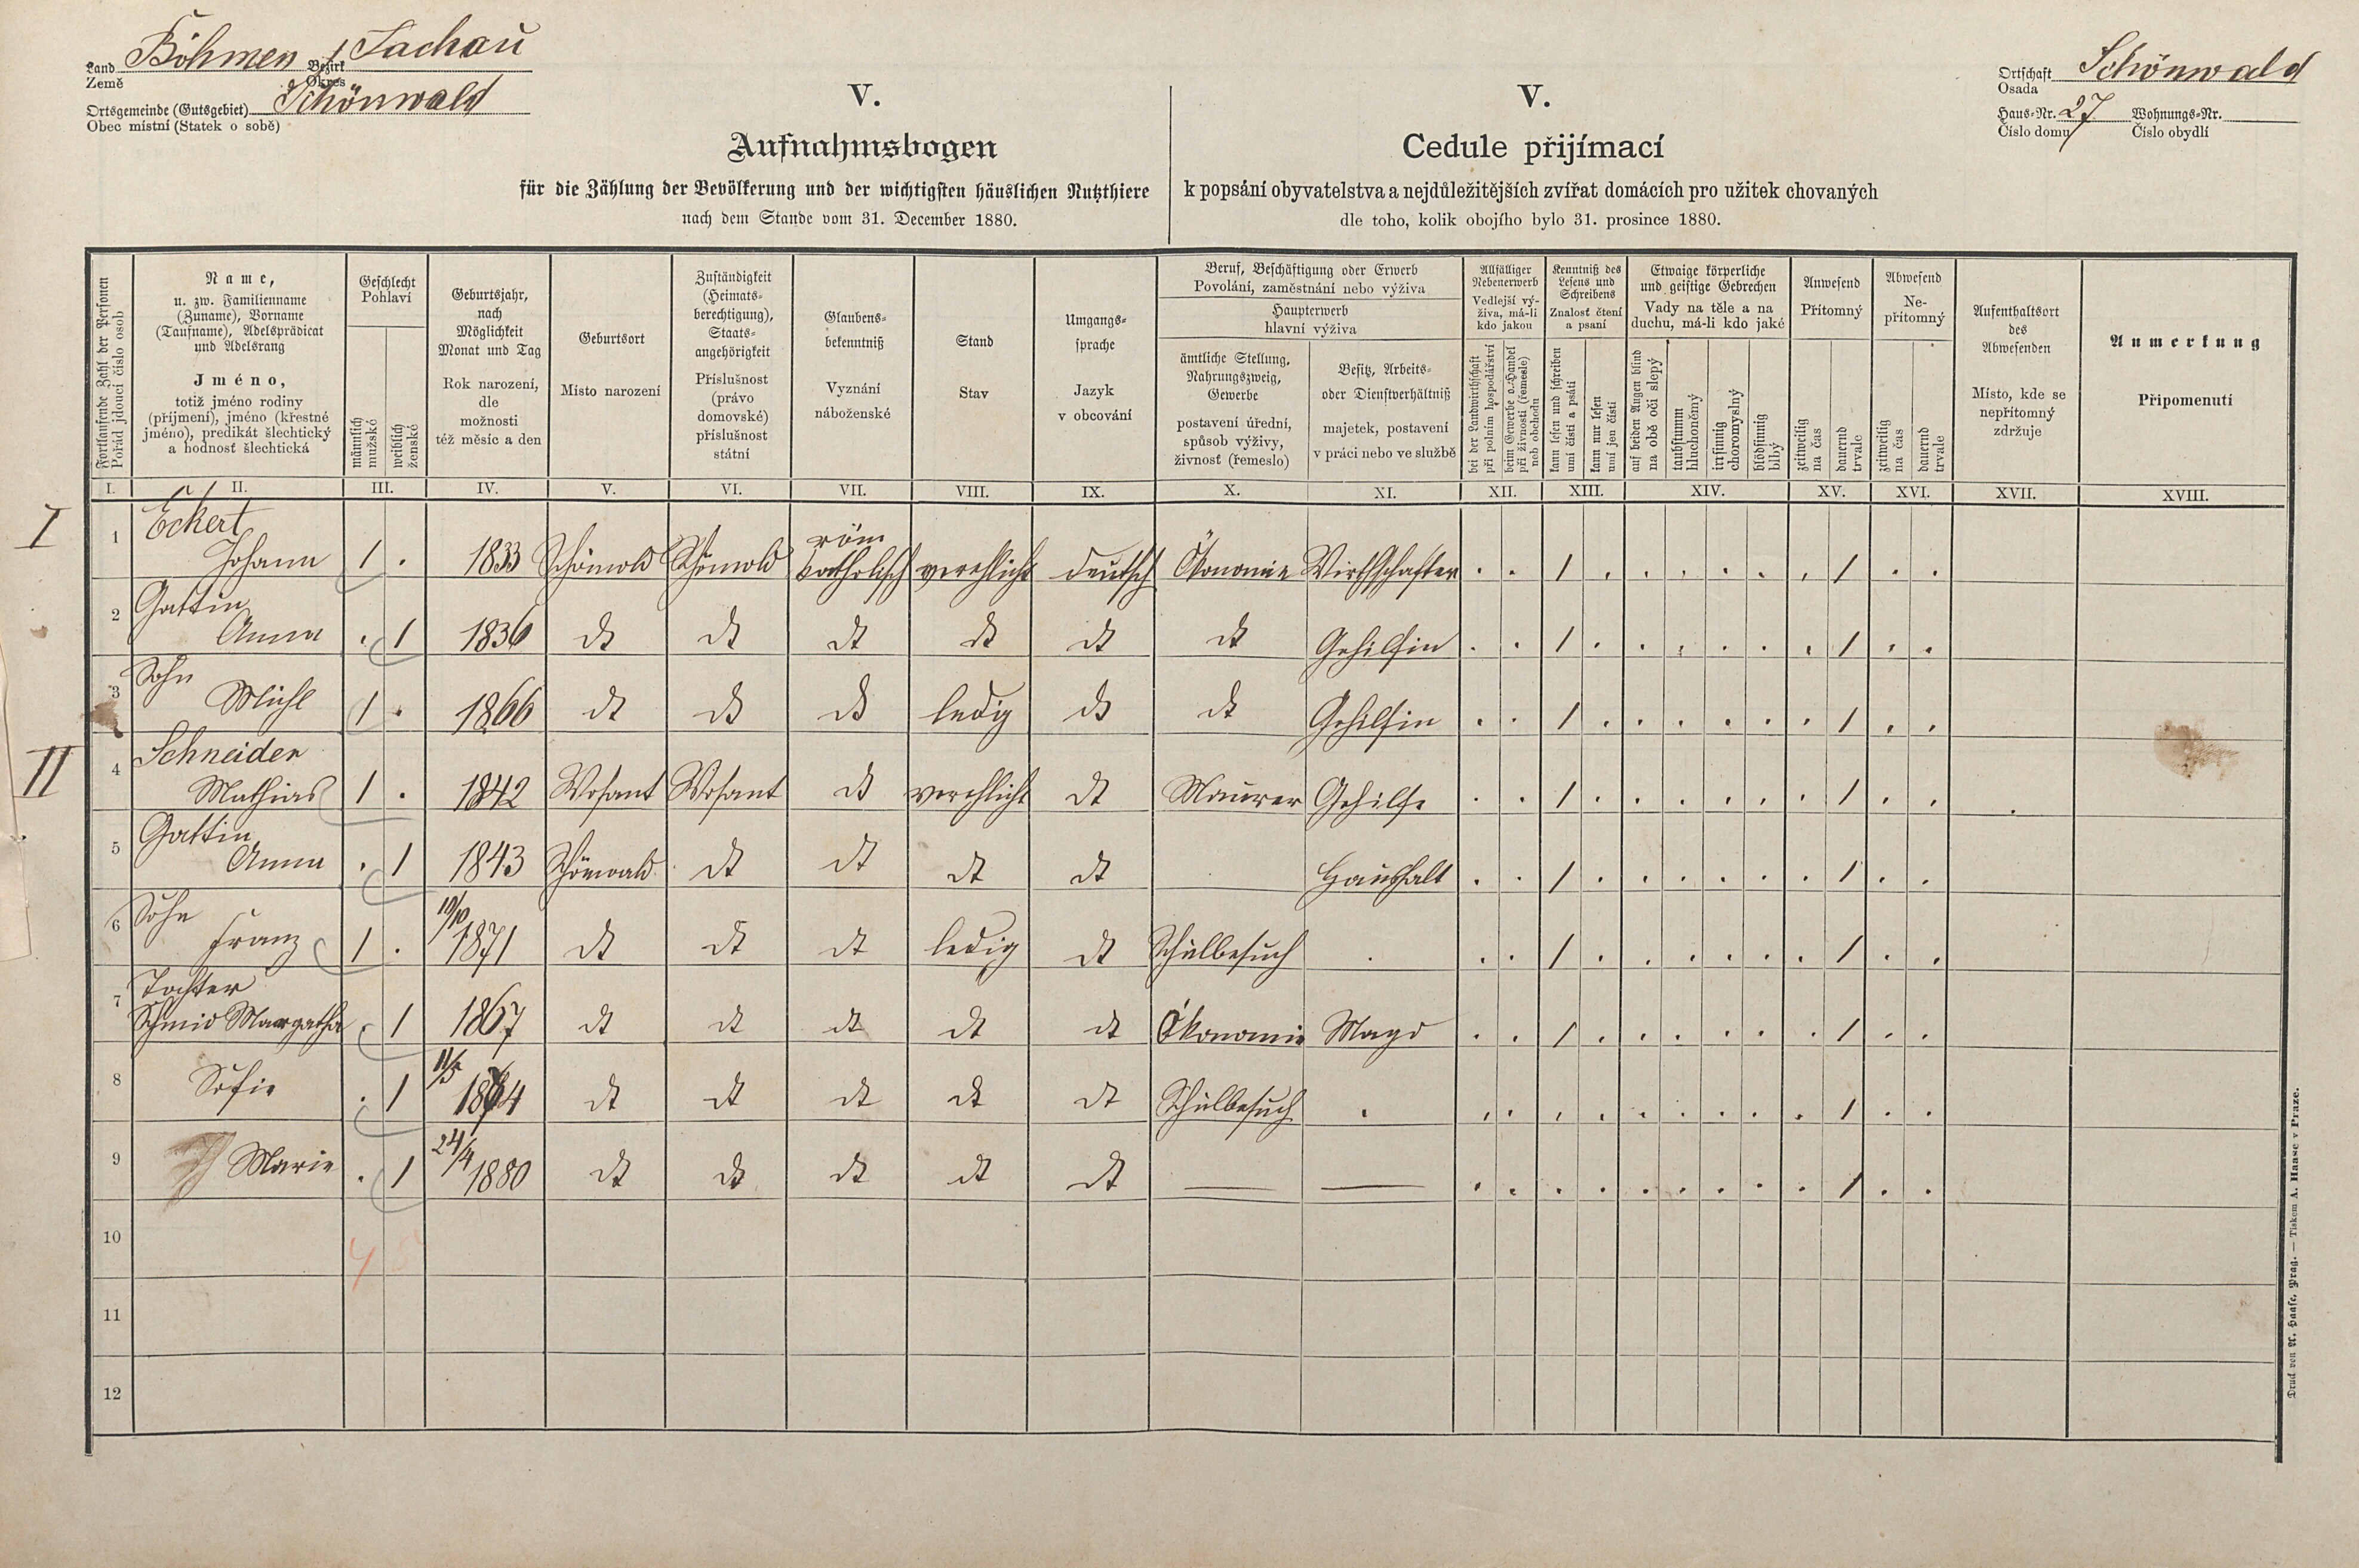 Land Böhmen Bezirk Tachau
Země Okres
Ortsgemeinde (Gutsgebiet) Schönwald
Obec místní (Statek o sobě)
V.
Aufnahmsbogen
für die Zählung der Bevölkerung und der wichtigsten häuslichen Nutzthiere
nach dem Stande vom 31. December 1880.
V.
Cedule přijímací
k popsání obyvatelstva a nejdůležitějších zvířat domácích pro užitek chovaných
dle toho, kolik obojího bylo 31. prosince 1880.
Ortschaft Schönwald
Osada
Haus-Nr. 27 Wohnungs-Nr.
Číslo domu Číslo obydlí
Fortlaufende Zahl der Personen
Pořád jdoucí číslo osob
Name,
u. zw. Familienname
(Zuname), Vorname
(Taufname), Adelsprädicat
und Adelsrang
Jméno,
totiž jméno rodiny
(příjmení), jméno (křestné
jméno), predikát šlechtický
a hodnosť šlechtická
Geschlecht
Pohlaví
männlich
mužské
weiblich
ženské
Geburtsjahr,
nach
Möglichkeit
Monat und Tag
Rok narození,
dle
možnosti
též měsíc a den
Geburtsort
Místo narození
Zuständigkeit
(Heimats-
berechtigung),
Staats-
angehörigkeit
Příslušnost
(právo
domovské)
příslušnost
státní
Glaubens-
bekenntniß
Vyznání
náboženské
Stand
Stav
Umgangs-
sprache
Jazyk
v obcování
Beruf, Beschäftigung oder Erwerb
Povolání, zaměstnání nebo výživa
Haupterwerb
hlavní výživa
ämtliche Stellung,
Nahrungszweig,
Gewerbe
postavení úřední,
spůsob výživy,
živnosť (řemeslo)
Besitz, Arbeits-
oder Dienstverhältniß
majetek, postavení
v práci nebo ve službě
Allfälliger
Nebenerwerb
Vedlejší vý-
živa, má-li
kdo jakou
bei der Landwirthschaft
při polním hospodářství
beim Gewerbe o. Handel
při živnosti (řemesle)
neb obchodu
Kenntniß des
Lesens und
Schreibens
Znalosť čtení
a psaní
kann lesen und schreiben
umí čísti a psáti
kann nur lesen
umí jen čísti
Etwaige körperliche
und geistige Gebrechen
Vady na těle a na
duchu, má-li kdo jaké
auf beiden Augen blind
na obě oči slepý
taubstumm
hluchoněmý
irrsinnig
choromyslný
blödsinnig
blbý
Anwesend
Přítomný
zeitweilig
na čas
dauernd
trvale
Abwesend
Ne-
přítomný
zeitweilig
na čas
dauernd
trvale
Aufenthaltsort
des
Abwesenden
Místo, kde se
nepřítomný
zdržuje
Anmerkung
Připomenutí
I. II. III. IV. V. VI. VII. VIII. IX. X. XI. XII. XIII. XIV. XV. XVI. XVII. XVIII.
I 1 Eckert
Johann 1 . 1833 Schönwald Schönwald röm katholisch verehlicht deutsch Ökonomie Wirthschafter . . 1 . . . . . . 1 . .
2 Gattin
Anna . 1 1836 dt dt dt dt dt dt Gehilfin . . 1 . . . . . . 1 . .
3 Sohn
Michl 1 . 1866 dt dt dt ledig dt dt Gehilfin . . 1 . . . . . . 1 . .
II 4 Schneider
Mathias 1 . 1842 Wosant Wosant dt verehlicht dt Maurer Gehilfe . . 1 . . . . . . 1 . . .
5 Gattin
Anna . 1 1843 Schönwald dt dt dt dt Haushalt . . 1 . . . . . . 1 . .
6 Sohn
Franz 1 . 10/10 1871 dt dt dt ledig dt Schulbesuch . . . 1 . . . . . . 1 . .
7 Tochter
Schmid Margatha . 1 1867 dt dt dt dt dt Ökonomie Magd . . 1 . . . . . . 1 . .
8 Sofie . 1 11/5 1874 dt dt dt dt dt Schulbesuch . . . . . . . . . . 1 . .
9 Marie . 1 24/4 1880 dt dt dt dt dt — — . . . . . . . . . 1 . .
10
4 5
11
12
Druck von A. Haase, Prag. — Tiskem A. Haase v Praze.